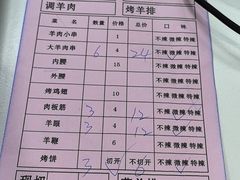 调羊肉 烤羊排
数量 价格 总价 口味
羊肉小串 1 不辣 微辣 特辣
大羊肉串 6 4 24 不辣 微辣 特辣
内腰 15 不辣 微辣 特辣
外腰 不辣 微辣 特辣
烤鸡翅 10 不辣 微辣 特辣
肉板筋 3 4 12 不辣 微辣 特辣
羊眼 3 4 12 不辣 微辣 特辣
羊鞭 不辣 微辣 特辣
烤饼 3 切开 不切开 不辣 微辣 特辣